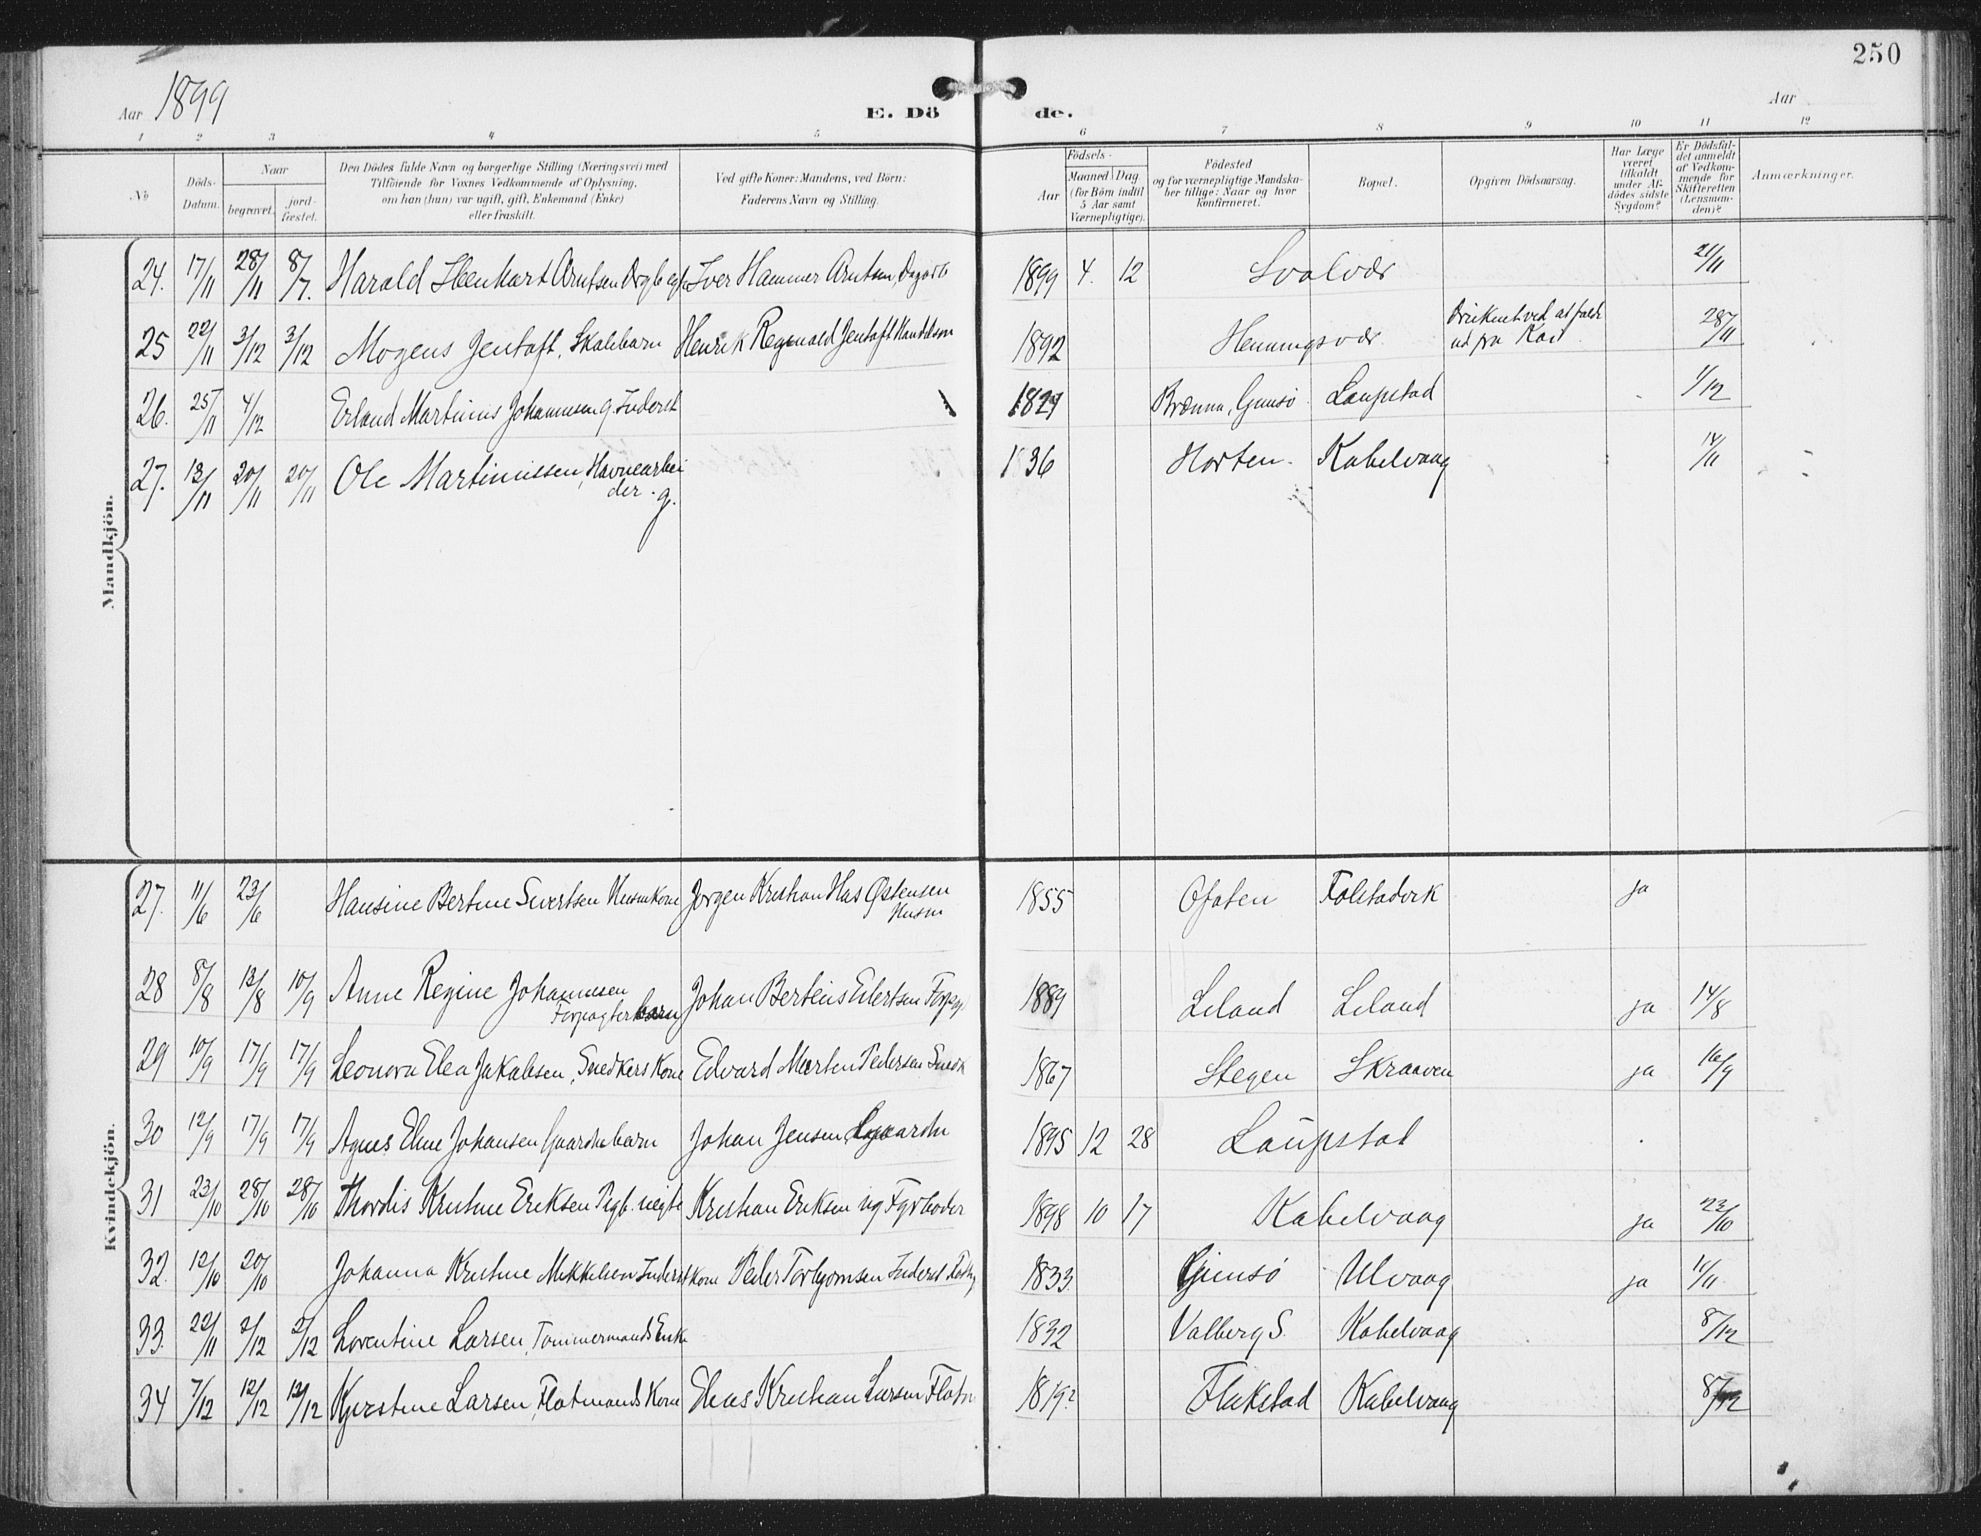 250
Aar 1899
E. Dö
de.
Aar
1 2 3 4 5 6 7 8 9 10 11 12
No
Döds-
Datum.
Naar
begravet.
jord-
fæstet.
Den Dödes fulde Navn og borgerlige Stilling (Næringsvei) med
Tilföiende for Voxnes Vedkommende af Oplysning,
om han (hun) var ugift, gift, Enkemand (Enke)
eller fraskilt.
Ved gifte Koner: Mandens, ved Börn:
Faderens Navn og Stilling.
Födsels-
Aar
Maaned Dag
(for Börn indtil
5 Aar samt
Værnepligtige).
Födested
og for værnepligtige Mandska-
ber tillige: Naar og hvor
konfirmeret.
Bopæl.
Opgiven Dödsaarsag.
Har Læge
været
tilkaldt
under Af-
dödes sidste
Sygdom?
Er Dödsfal-
det anmeldt
af Vedkom-
mende for
Skifteretten
(Lensman-
den)?
Anmærkninger.
Mandkjön.
24. 17/11 28/11 8/7. Harald Arntsen Iver Hammer Arntsen, 1899 4. 12 Svolvær 21/11
25 22/11 3/12 3/12 Mogens Jentoft, Henrik Reginald Jentoft 1892 Henningsvær ved at falde 28/11
ud fra Kai
26. 25/11 4/12 Erland Martinus Johannesen g. Inderst 1829 Brænna, Gimsø Laupstad 1/12
27. 13/11 20/11 20/11 Ole Martinussen, Havnearbei 1836 Horten. Kabelvaag 14/11
der. g.
Kvindekjön.
27. 11/6 23/6 Hansine Bertine Sivertsen Husmkone Jørgen Kristian Østensen 1855 Ofoten ja
Husm
28 8/8 12/8 10/9 Anne Regine Johannesen Johan Eilertsen Forp. 1889 Liland Liland ja 14/8
Forpagterbarn
29 10/9 17/9 17/9 Leonora Elea Jakobsen, Snedkers Kone Edvard Martin Pedersen Snedk 1867 Stegen Skraaven ja 16/9
30 12/9 17/9 17/9 Agnes Eline Johansen Gaardmbarn Johan Jensen, Gaardm 1895 12 28 Laupstad
31 23/10 28/10 28/10 Thordis Kristine Eriksen Pigb. Kristian Eriksen 1898 10 17 Kabelvaag ja 23/10
32. 12/10 20/10 Johanna Kristine Mikkelsen Inderstkone Peder Inderst 1833. Gimsø Ulvaag ja 11/11
33. 22/11 2/12 2/12 Lorentine Larsen, Tømmermands Enke 1832 Valberg S. Kabelvaag 8/12
34 7/12 12/12 12/12 Kjerstine Larsen, Flotmands Kone Elias Kristian Larsen Flotm 1819? Flakstad Kabelvaag 8/12